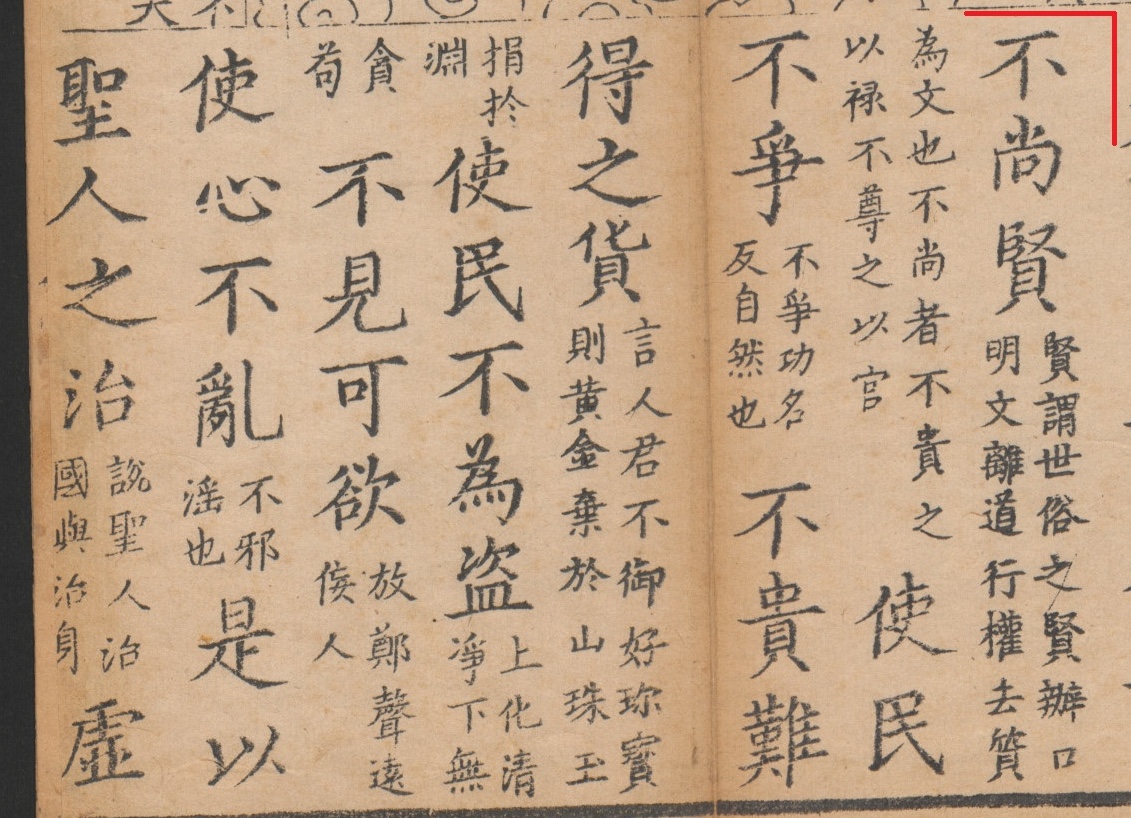 不尚賢
賢謂世俗之賢辧口
明文離道行權去質
為文也不尚者不貴之
以禄不尊之以官
使民
不爭
不爭功名
反自然也
不貴難
得之貨
言人君不御好珎寳
則黄金棄於山珠玉
捐於
淵
使民不為盜
上化清
淨下無
貪
茍
不見可欲
放鄭聲逺
侫人
使心不亂
不邪
滛也
是以
聖人之治
說聖人治
國與治身
虛